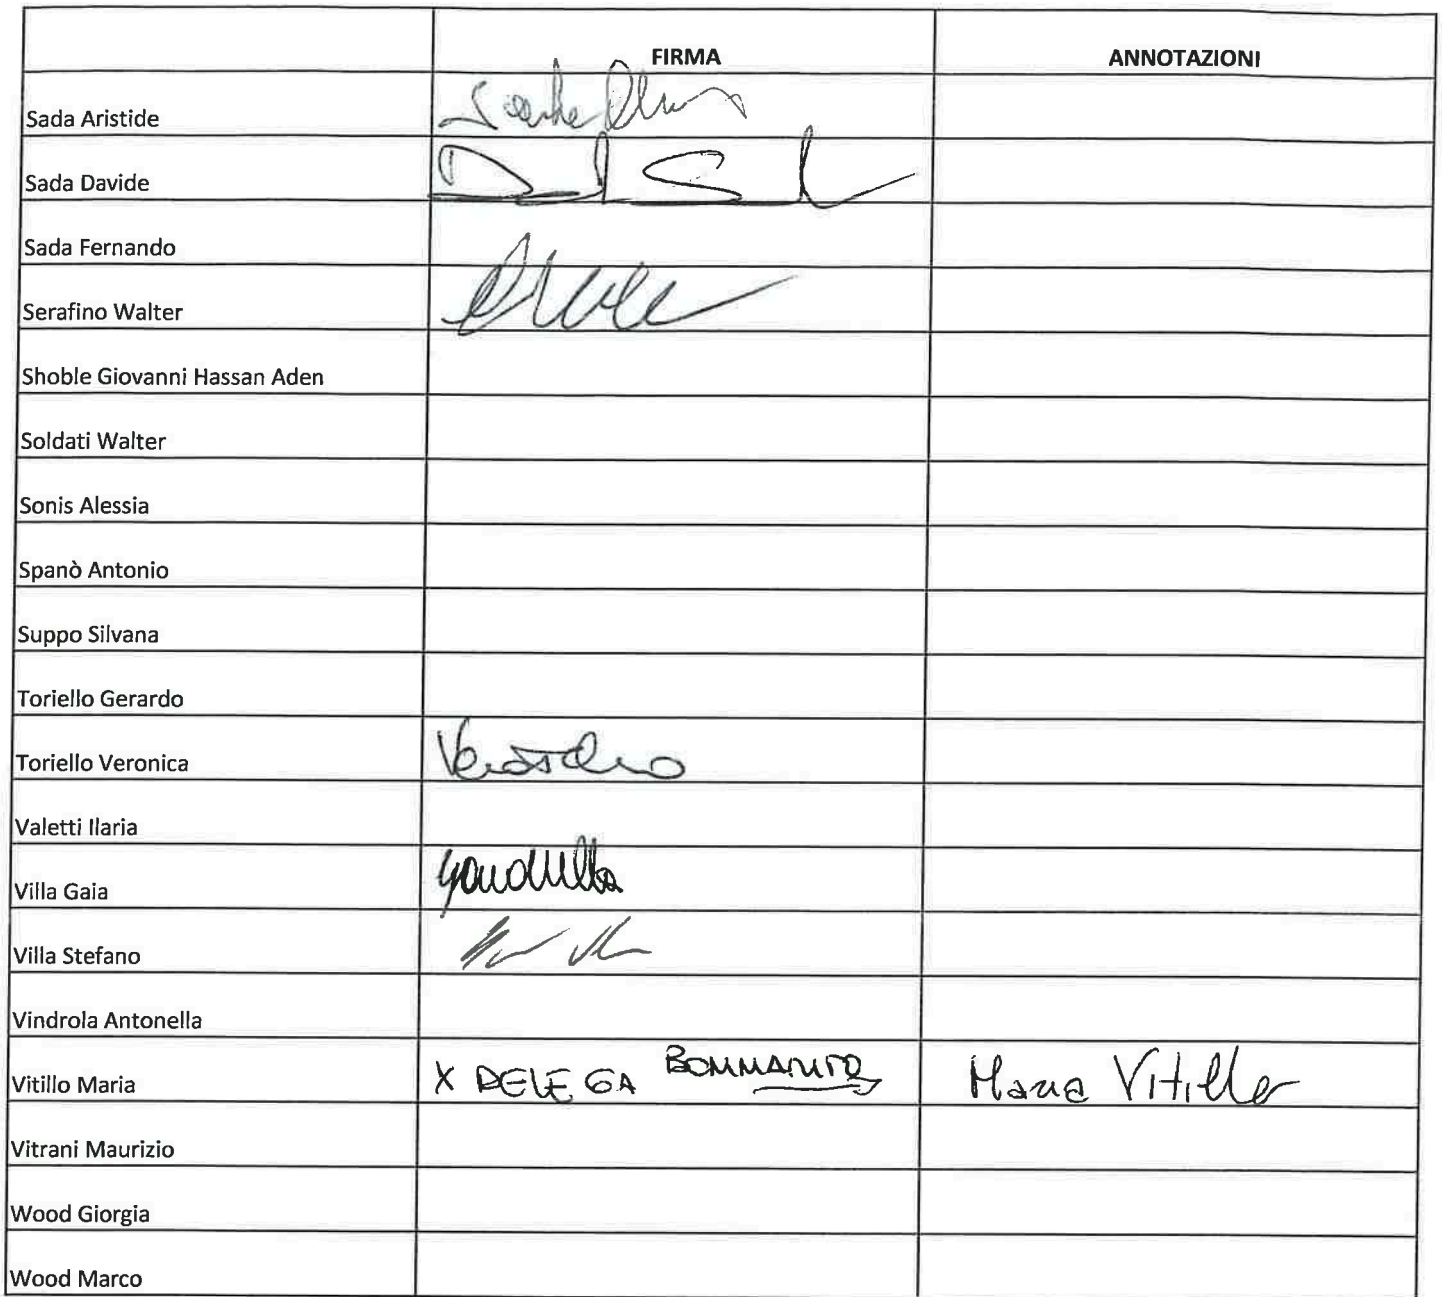 FIRMA ANNOTAZIONI
Sada Aristide
Sada Davide
Sada Fernando
Serafino Walter
Shoble Giovanni Hassan Aden
Soldati Walter
Sonis Alessia
Spanò Antonio
Suppo Silvana
Toriello Gerardo
Toriello Veronica
Valetti Ilaria
Villa Gaia
Villa Stefano
Vindrola Antonella
Vitillo Maria X DELEGA Maria Vitillo
Vitrani Maurizio
Wood Giorgia
Wood Marco